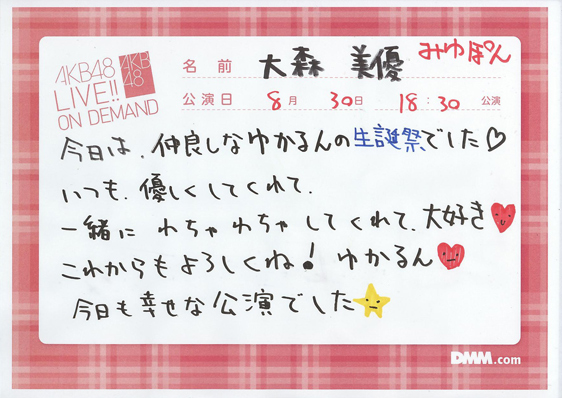 AKB48
LIVE!!
ON DEMAND
AKB
48
名前 大森 美優 みゆぽん
公演日 8月 30日 18:30 公演
今日は、仲良しなゆかるんの生誕祭でした♡
いつも、優しくしてくれて、
一緒に わちゃわちゃ してくれて、大好き
これからもよろしくね! ゆかるん
今日も幸せな公演でした
DMM.com